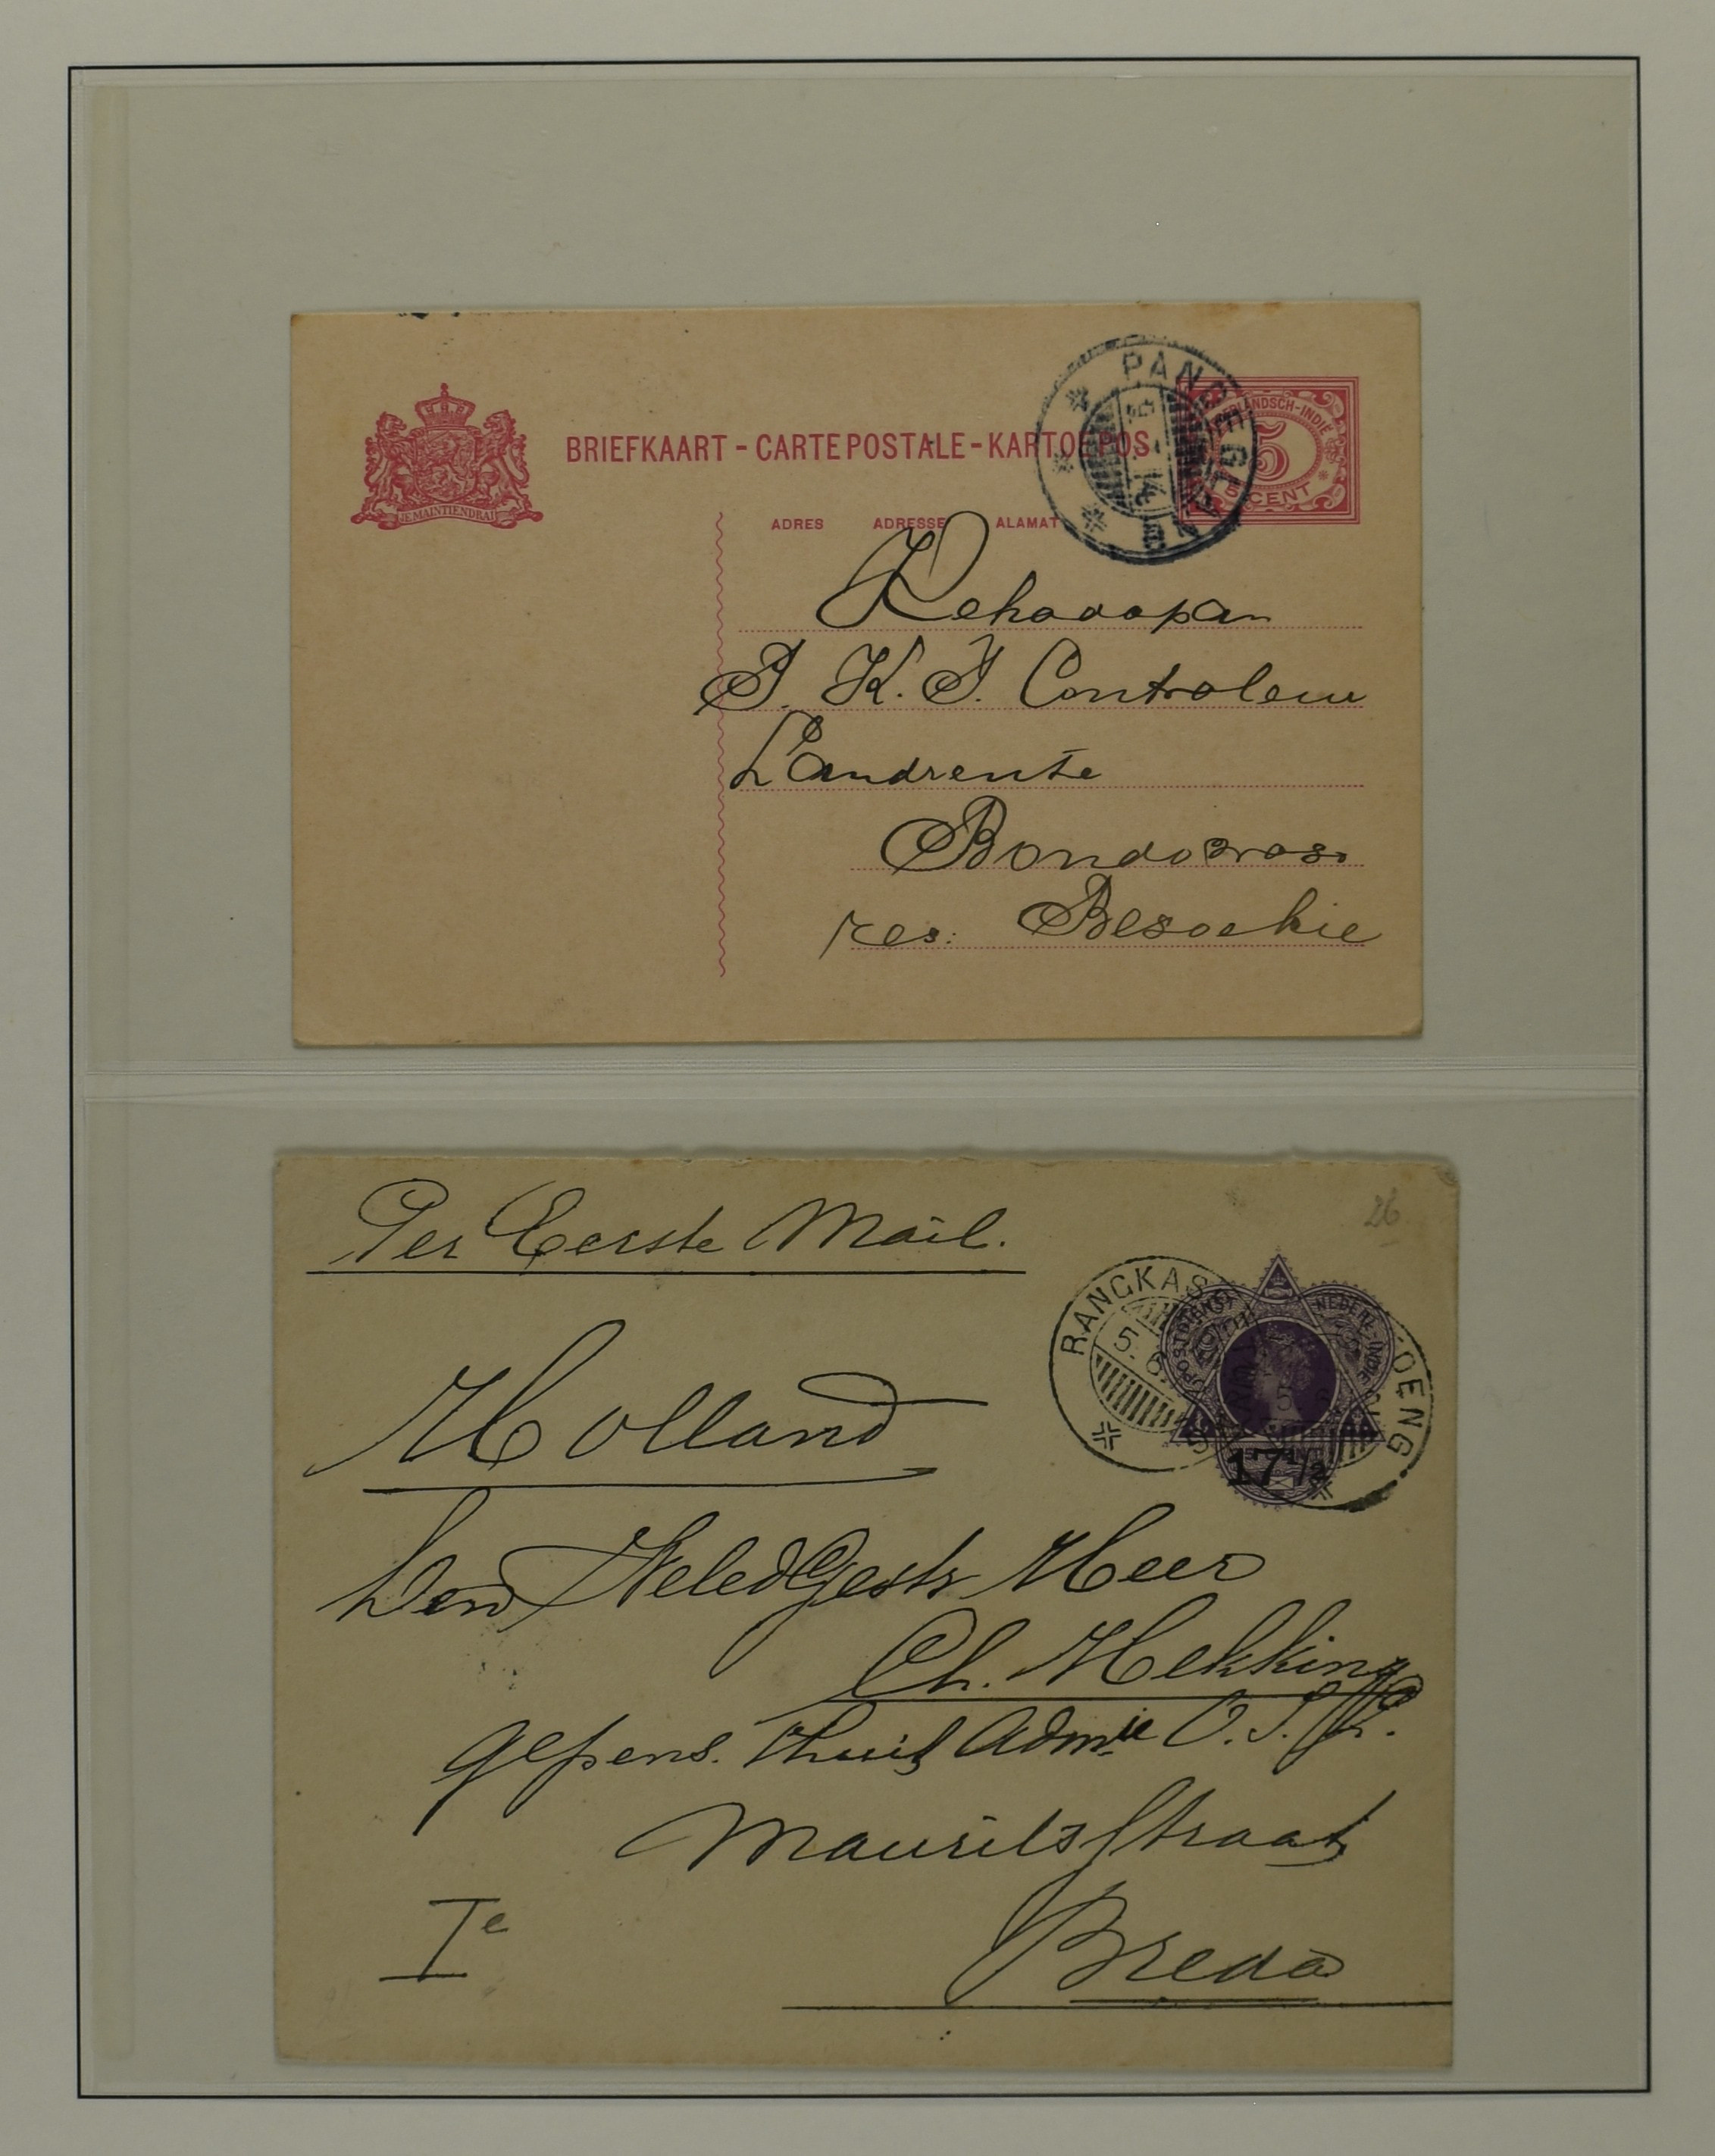 BRIEFKAART - CARTE POSTALE - KARTOEPOS
JE MAINTIENDRAI
PANDEGLANG
NEDERLANDSCH-INDIË
5
5 CENT
ADRES ADRESSE ALAMAT
P. K. I. Controleur
Landrente
Bondowoso
res: Besoekie
26
Per Eerste Mail.
RANGKAS OENG
5. 6.
POSTDIENST NEDERL.-INDIE
17 1/2
Holland
Den WeledGestr Heer
Ch. Mekking
gepens. Adm
Maurits Straat
Ie
Breda